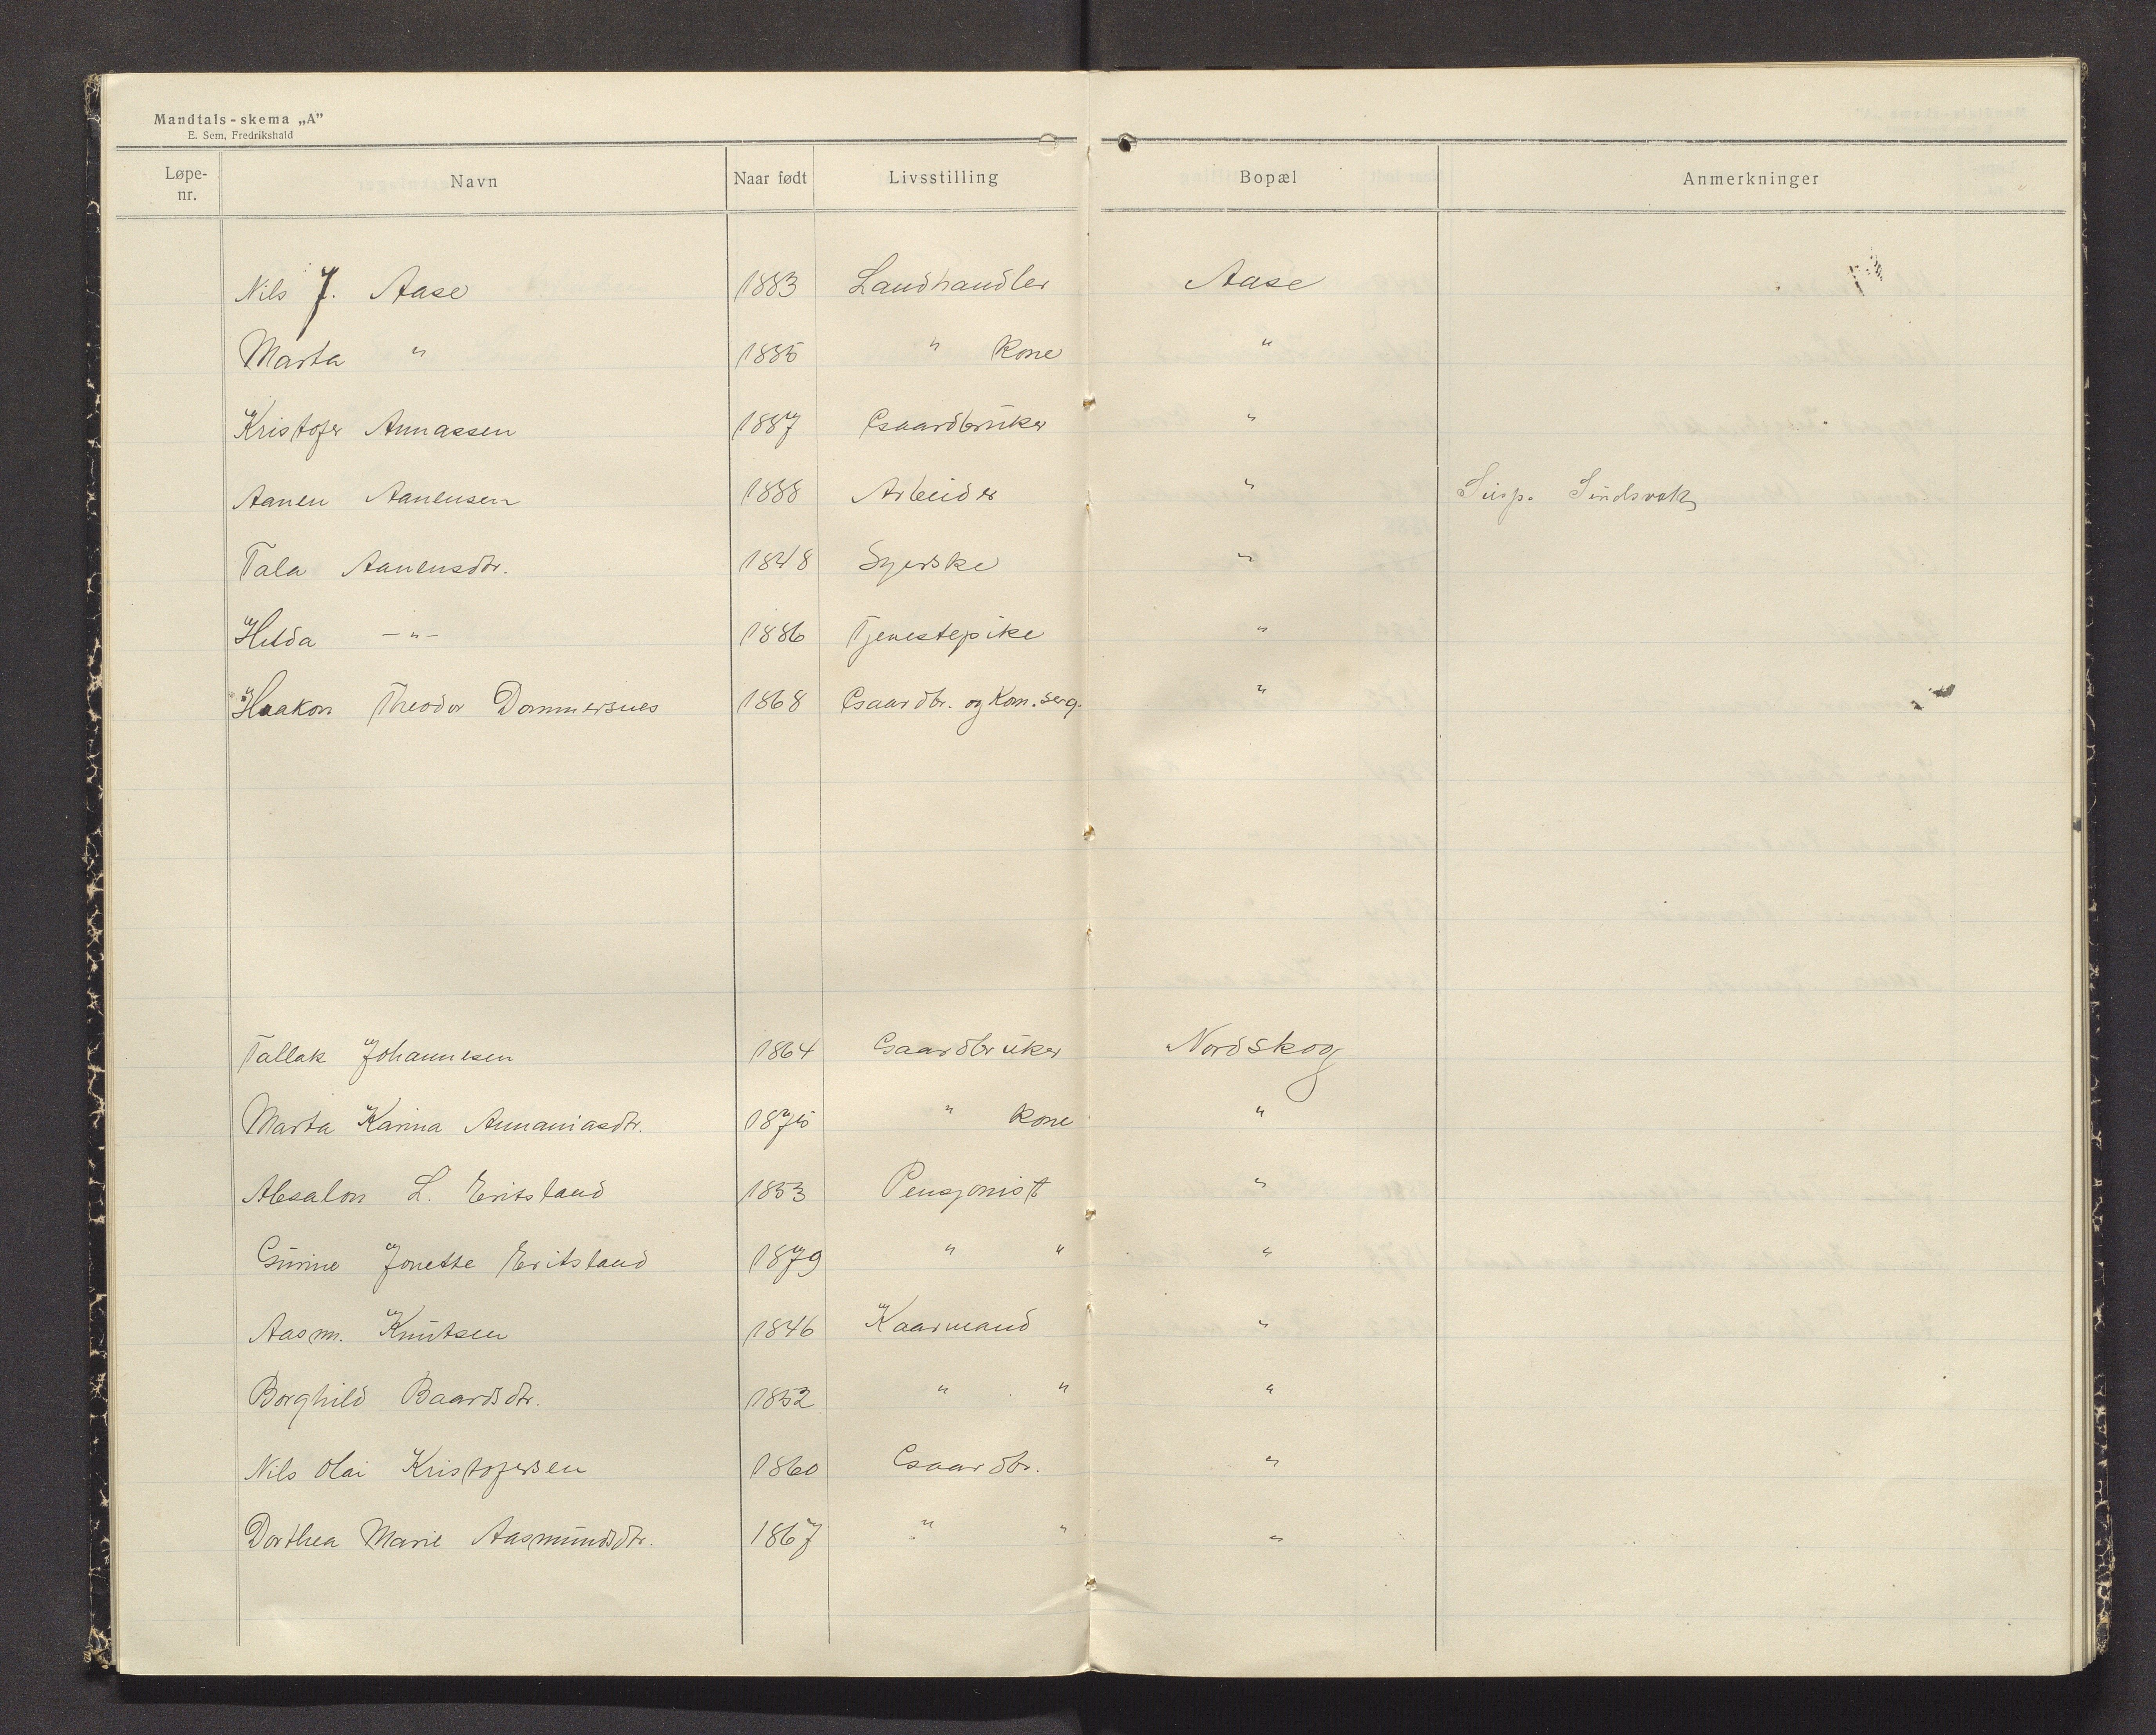 Mandtals-skema „A”
E. Sem, Fredrikshald
Løpe-nr. Navn Naar født Livsstilling Bopæl Anmerkninger
Nils J. Aase 1883 Landhandler Aase
Marta " 1885 " Kone "
Kristofer Annassen 1887 Gaardbruker "
Aanen Aanensen 1888 Arbeider " Susp. Sindsvak
Tala Aanensdtr. 1848 Syerske "
Hilda -"- 1886 Tjenestepike "
Haakon Theodor Dommersnes 1868 Gaardbr. og Kom. serg. "
Tallak Johannesen 1864 Gaardbruker Nordskog
Marta Karina Annaniasdtr. 1875 " Kone "
Absalon L. Eritsland 1853 Pensjonist "
Gurine Jonette Eritsland 1879 " " "
Aasm. Knutsen 1846 Kaarmand "
Borghild Baardsdtr. 1852 " " "
Nils Olai Kristofersen 1860 Gaardbr. "
Dorthea Marie Aasmundsdtr. 1867 " " "